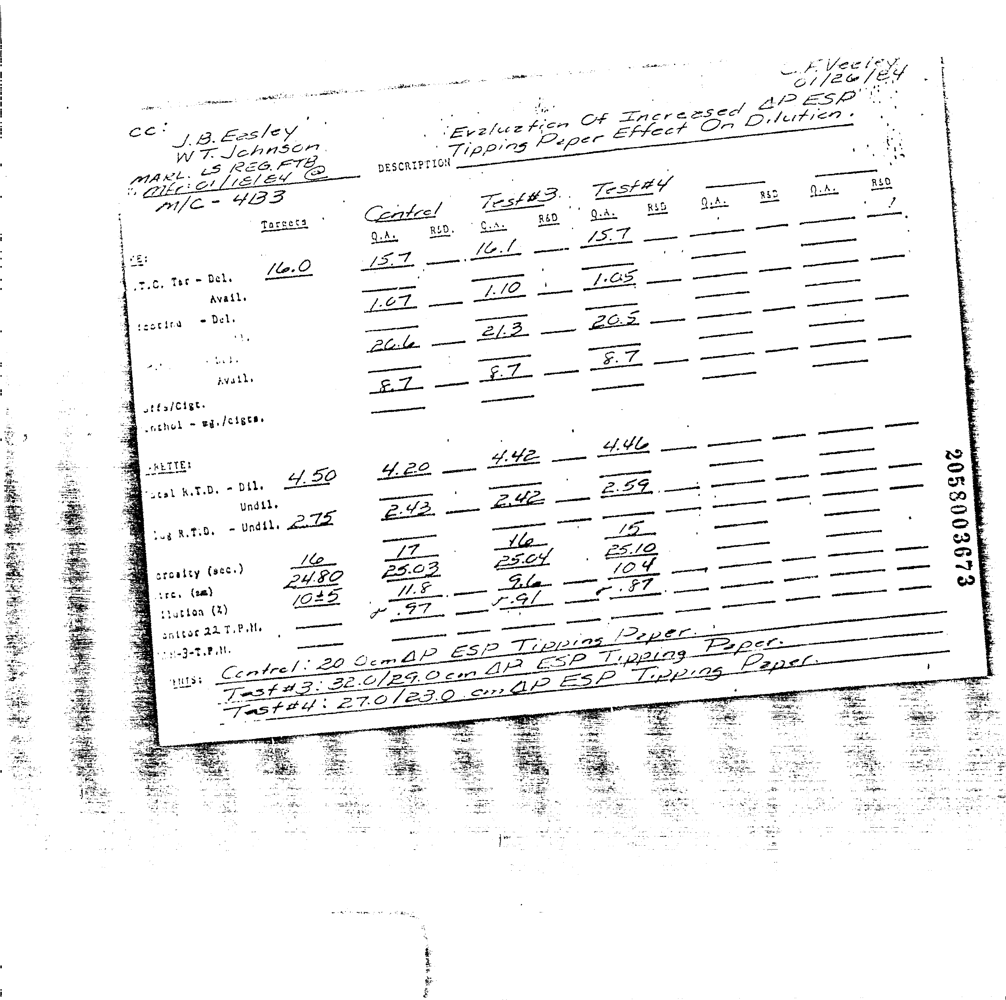 C.F. Veeley
01/26/84
cc:
J.B. Easley
W.T. Johnson
MARL. LS REG. FTB
Mfr: 01/18/84 @
M/C - 4133
DESCRIPTION Evaluation Of Increased ΔP ESP
Tipping Paper Effect On Dilution.
Control Test #3 Test #4
Targets Q.A. R&D. Q.A. R&D Q.A. R&D Q.A. R&D Q.A. R&D
T.C. Tar - Del. 16.0 15.7 16.1 15.7
Avail.
- Del. 1.07 1.10 1.05
20.6 21.3 20.5
Avail.
8.7 8.7 8.7
uffs/Cigt.
nthol - mg./cigts.
RETTE:
otal R.T.D. - Dil. 4.50 4.20 4.42 4.46
Undil.
ug R.T.D. - Undil. 2.75 2.43 2.42 2.59
orosity (sec.) 16 17 16 15
irc. (mm) 24.80 25.03 25.04 25.10
ilution (%) 10±5 11.8 9.6 10.4
onitor 22 T.P.M. r .97 r .91 r .87
-3-T.P.M.
ENTS: Control: 20.0cm ΔP ESP Tipping Paper.
Test #3: 32.0/29.0 cm ΔP ESP Tipping Paper.
Test #4: 27.0/23.0 cm ΔP ESP Tipping Paper.
2058003673